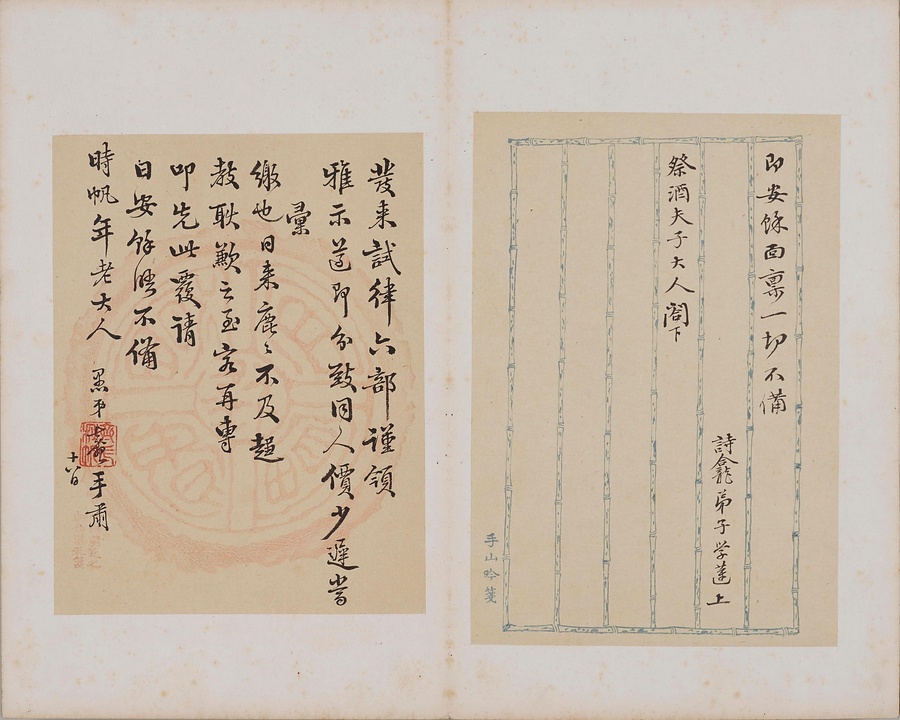 即安餘面稟一切不備
詩龕弟子学蓮上
祭酒夫子大人閤下
手山吟箋
發來試律六部謹領
雅示蓋即分致同人價少遲當
彙
繳也日來鹿鹿不及趨
教耿歉之至容再專
叩先此覆請
日安餘陸不備
時帆年老大人
愚弟 手肅
十八日